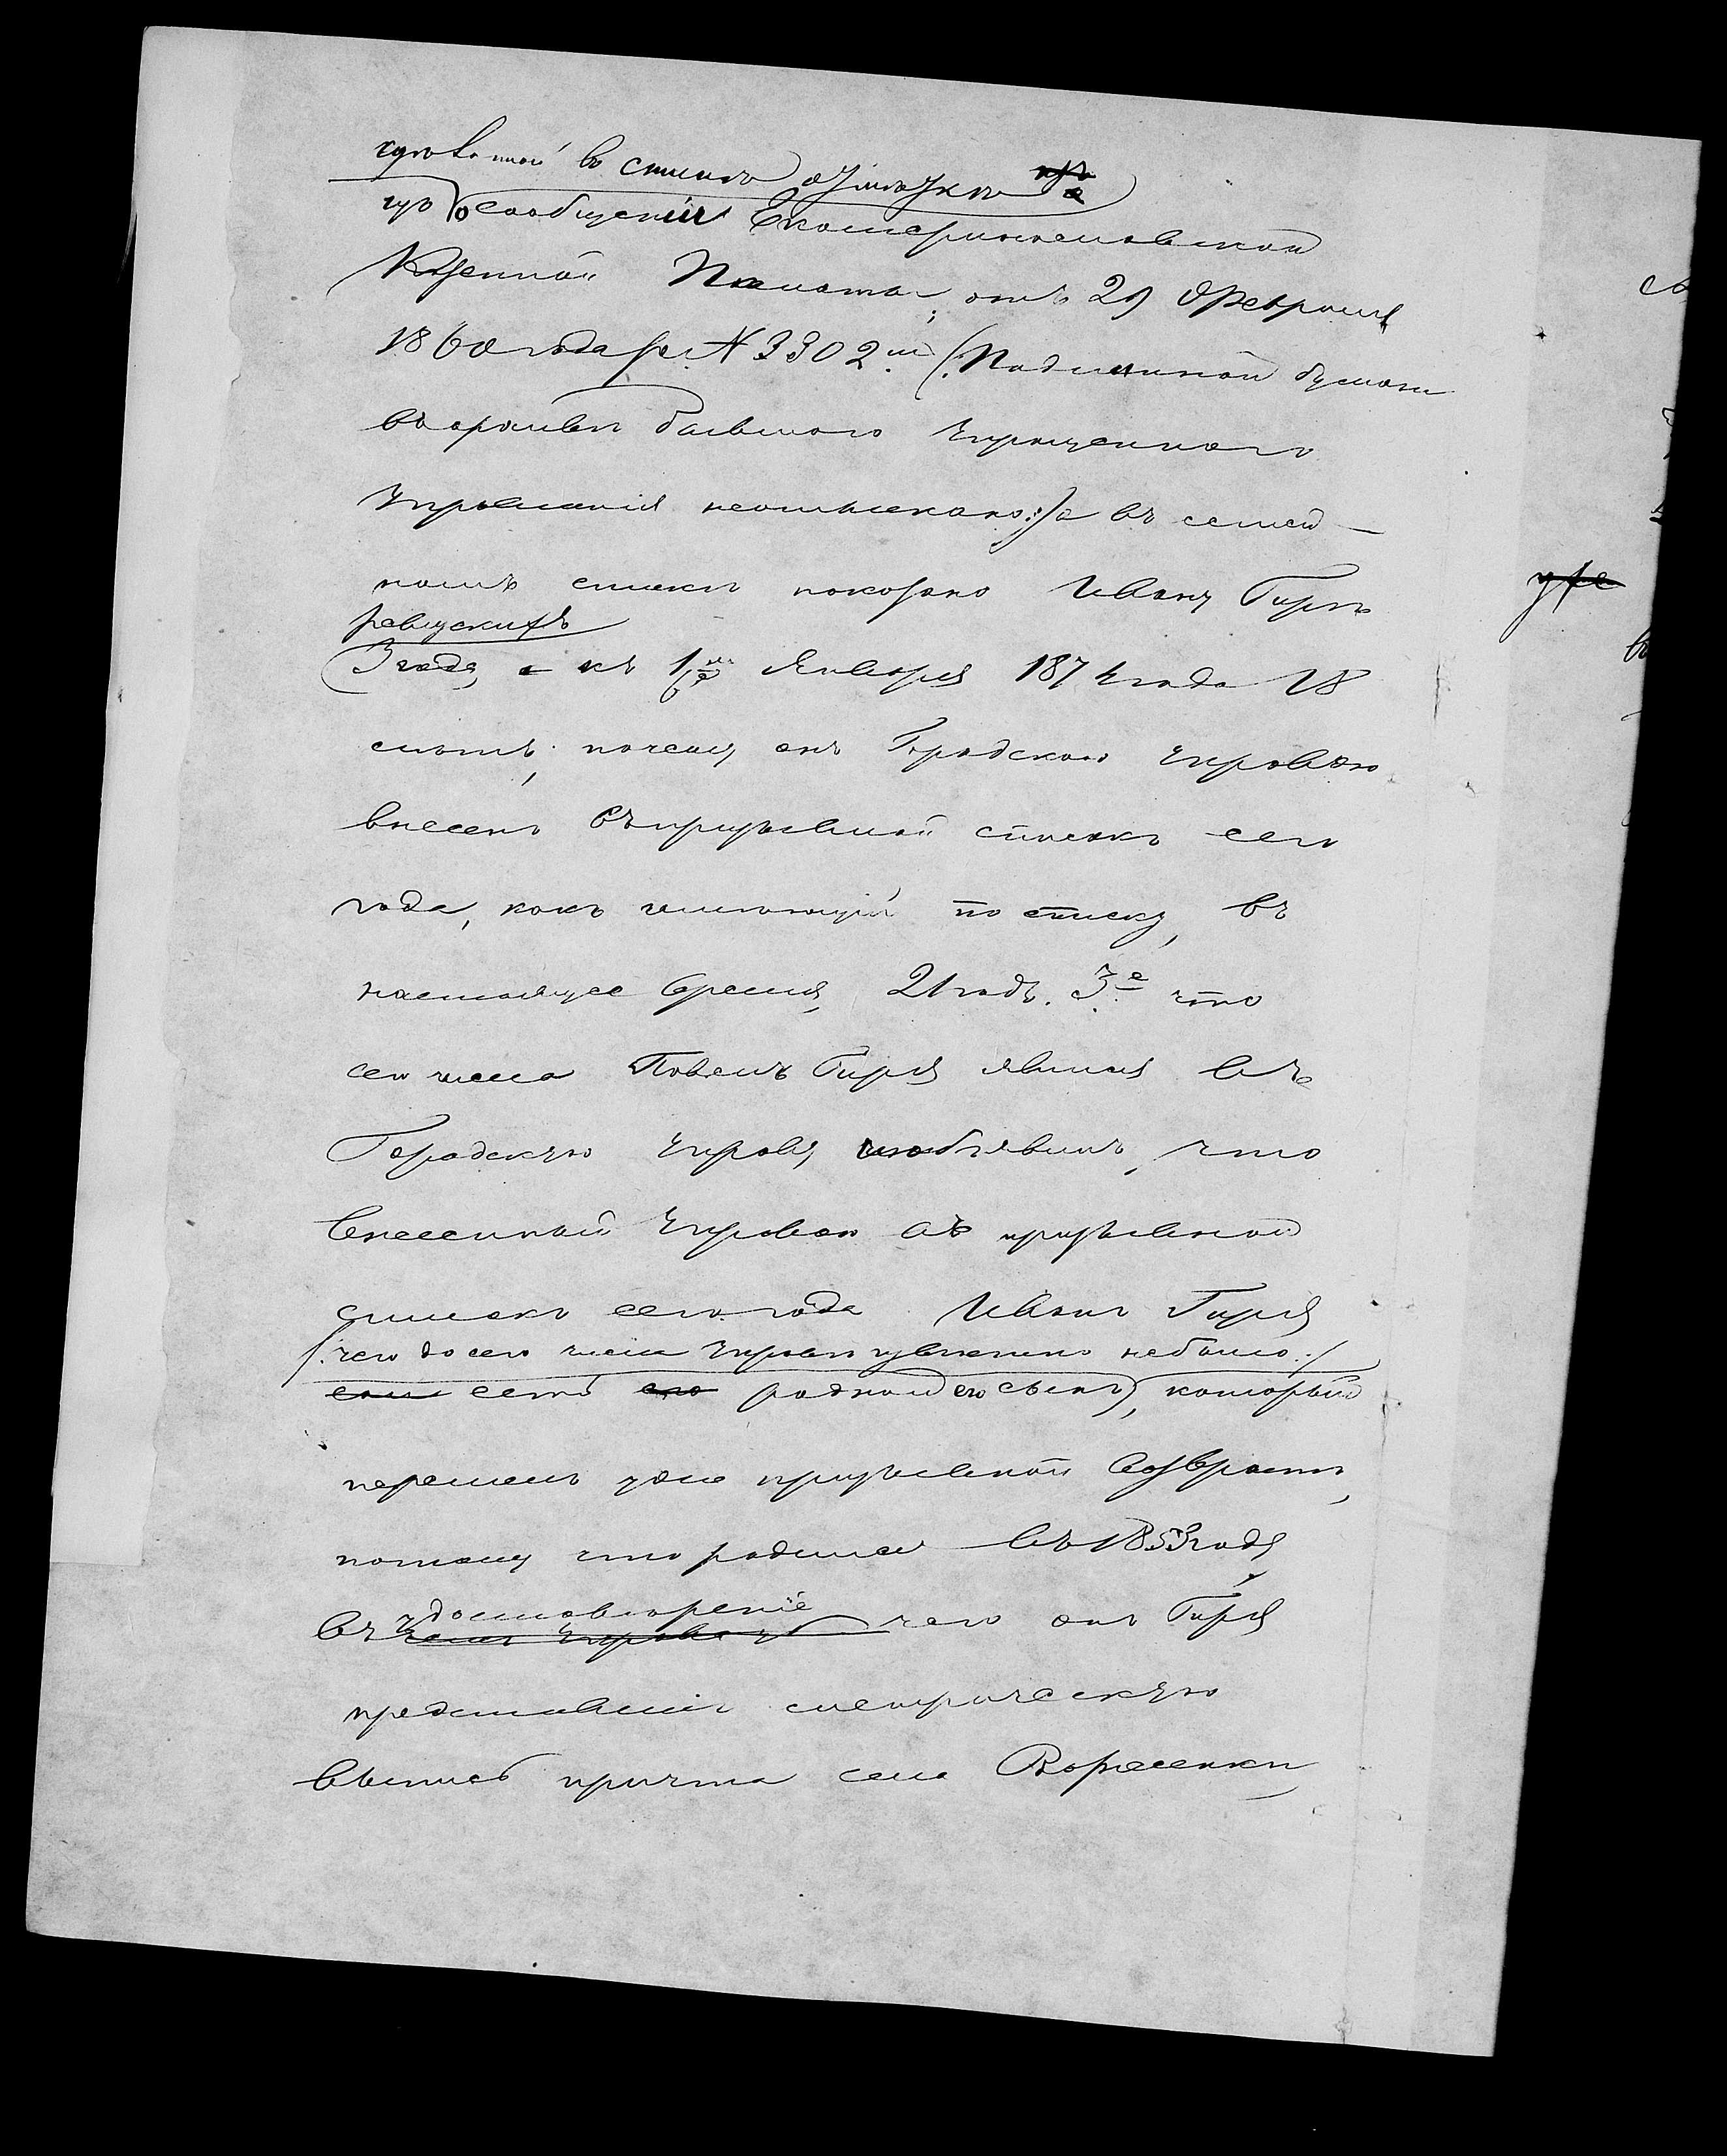 въ списокъ
сообщенія Екатеринославской
Казенной Палаты, отъ 29 Февраля
1860 года за № 3302мъ (:Подлинной бумаги
въ архивѣ бывшаго Упрощеннаго
Управленія неотыскано:) а въ семей-
номъ списке показано Ивану Гирѣ
ревизскихъ
3 года, а къ 1му Января 1874 года 18
лѣтъ, почему онъ Городскою Управою
внесенъ въ призывной списокъ сего
года, какъ имеющій по списку, въ
настоящее время, 21 годъ. 3е что
сего числа Павелъ Гиря явился въ
Городскую Управу, объявилъ, что
внесенный Управою въ призывной
списокъ сего года Иванъ Гиря
(:чего до сего числа Управе не было:)
есть родной его сынъ, который
уже призывной возрастъ,
потому что родился въ 1853 году
въ удостоверение чего онъ Гиря
представилъ метрическую
выпись причта села Вознесенки,
уже